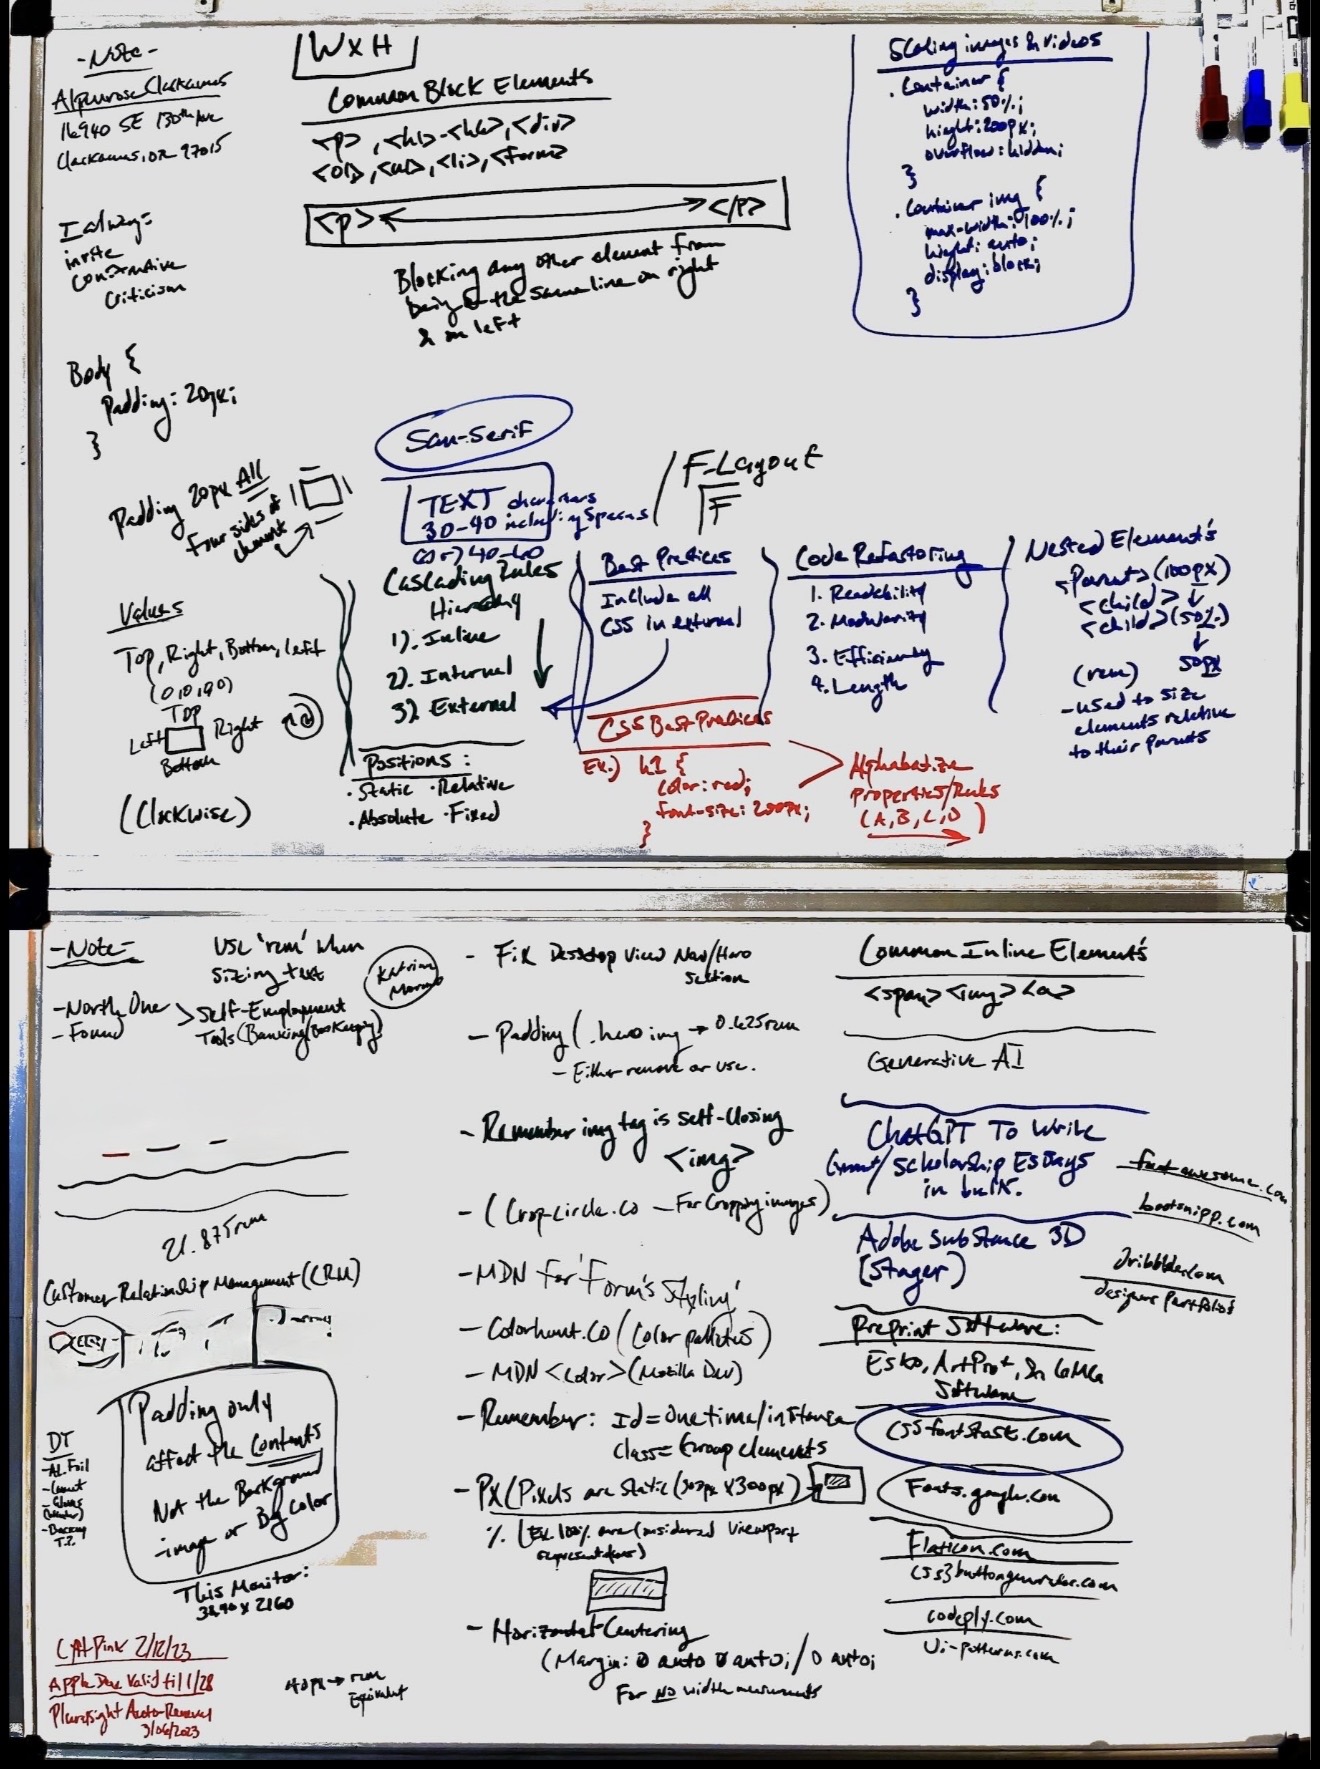 - Note -
16940 SE 130th Ave
Clackamas, OR 97015
invite
constructive
criticism
Body {
Padding: 20px;
}
Padding 20px All
Four sides of
element
Values
Top, Right, Bottom, left
(0,0,0,0)
TOP
Left
Right
Bottom
(Clockwise)
WxH
Common Block Elements
<p>, <h1>-<h6>, <div>
<ol>, <ul>, <li>, <form>
<p> </p>
Blocking any other element from
being on the same line on right
& on left
Scaling images & videos
.Container {
width: 50%;
hight: 200px;
overflow: hidden;
}
.Container img {
max-width: 100%;
hight: auto;
display: block;
}
San-Serif
TEXT characters
30-40 including Spaces
(or) 40-60
F-Layout
F
Cascading Rules
Hierarchy
1). Inline
2). Internal
3). External
Positions:
.Static .Relative
.Absolute .Fixed
Best Practices
Include all
CSS in external
CSS Best Practices
Ex.) h1 {
color: red;
font-size: 200px;
}
Alphabetize
Properties/Rules
(A, B, C, D)
Code Refactoring
1. Readability
2. Modularity
3. Efficiency
4. Length
Nested Element's
<Parent> (100px)
<child>
<child> (50%)
50px
(rem)
- used to size
elements relative
to their parents
- Note -
Use 'rem' when
sizing text
- North One
- Found
> Self-Employment
Tools (Banking/Bookeeping)
Katrina
21.875rem
Customer Relationship Management (CRM)
Padding only
affect the Contents
Not the Background
-image or Bg color
DT
This Monitor:
3840 x 2160
2/12/23
Apple Dev Valid til 1/28
Pluralsight Auto-Renewal
3/06/2023
40px → rem
Equivalent
- Fix Desktop View Nav/Hero
section
- Padding (.hero img → 0.625rem
- Either remove or use.
- Remember img tag is self-closing
<img>
- (Crop-circle.co - For Cropping images)
- MDN for 'Form's Styling'
- Colorhunt.co (Color palletes)
- MDN <color> (Mozilla Dev)
- Remember: Id = one time/instance
class = Group elements
- PX (Pixels are static (300px X 300px)
% (Ex. 100% are considered viewport
representations)
- Horizontal Centering
(Margin: 0 auto 0 auto; / 0 auto;
For No width measurements
Common Inline Element's
<span> <img> <a>
Generative AI
ChatGPT To Write
Grant/Scholarship Essays
in bulk.
fontawesome.com
bootsnipp.com
Adobe Substance 3D
(Stager)
dribbble.com
designers Portfolios
Preprint Software:
Esko, ArtPro+, & GMG
Software
cssfontstack.com
Fonts.google.com
Flaticon.com
css3buttongenerator.com
codeply.com
Ui-patterns.com